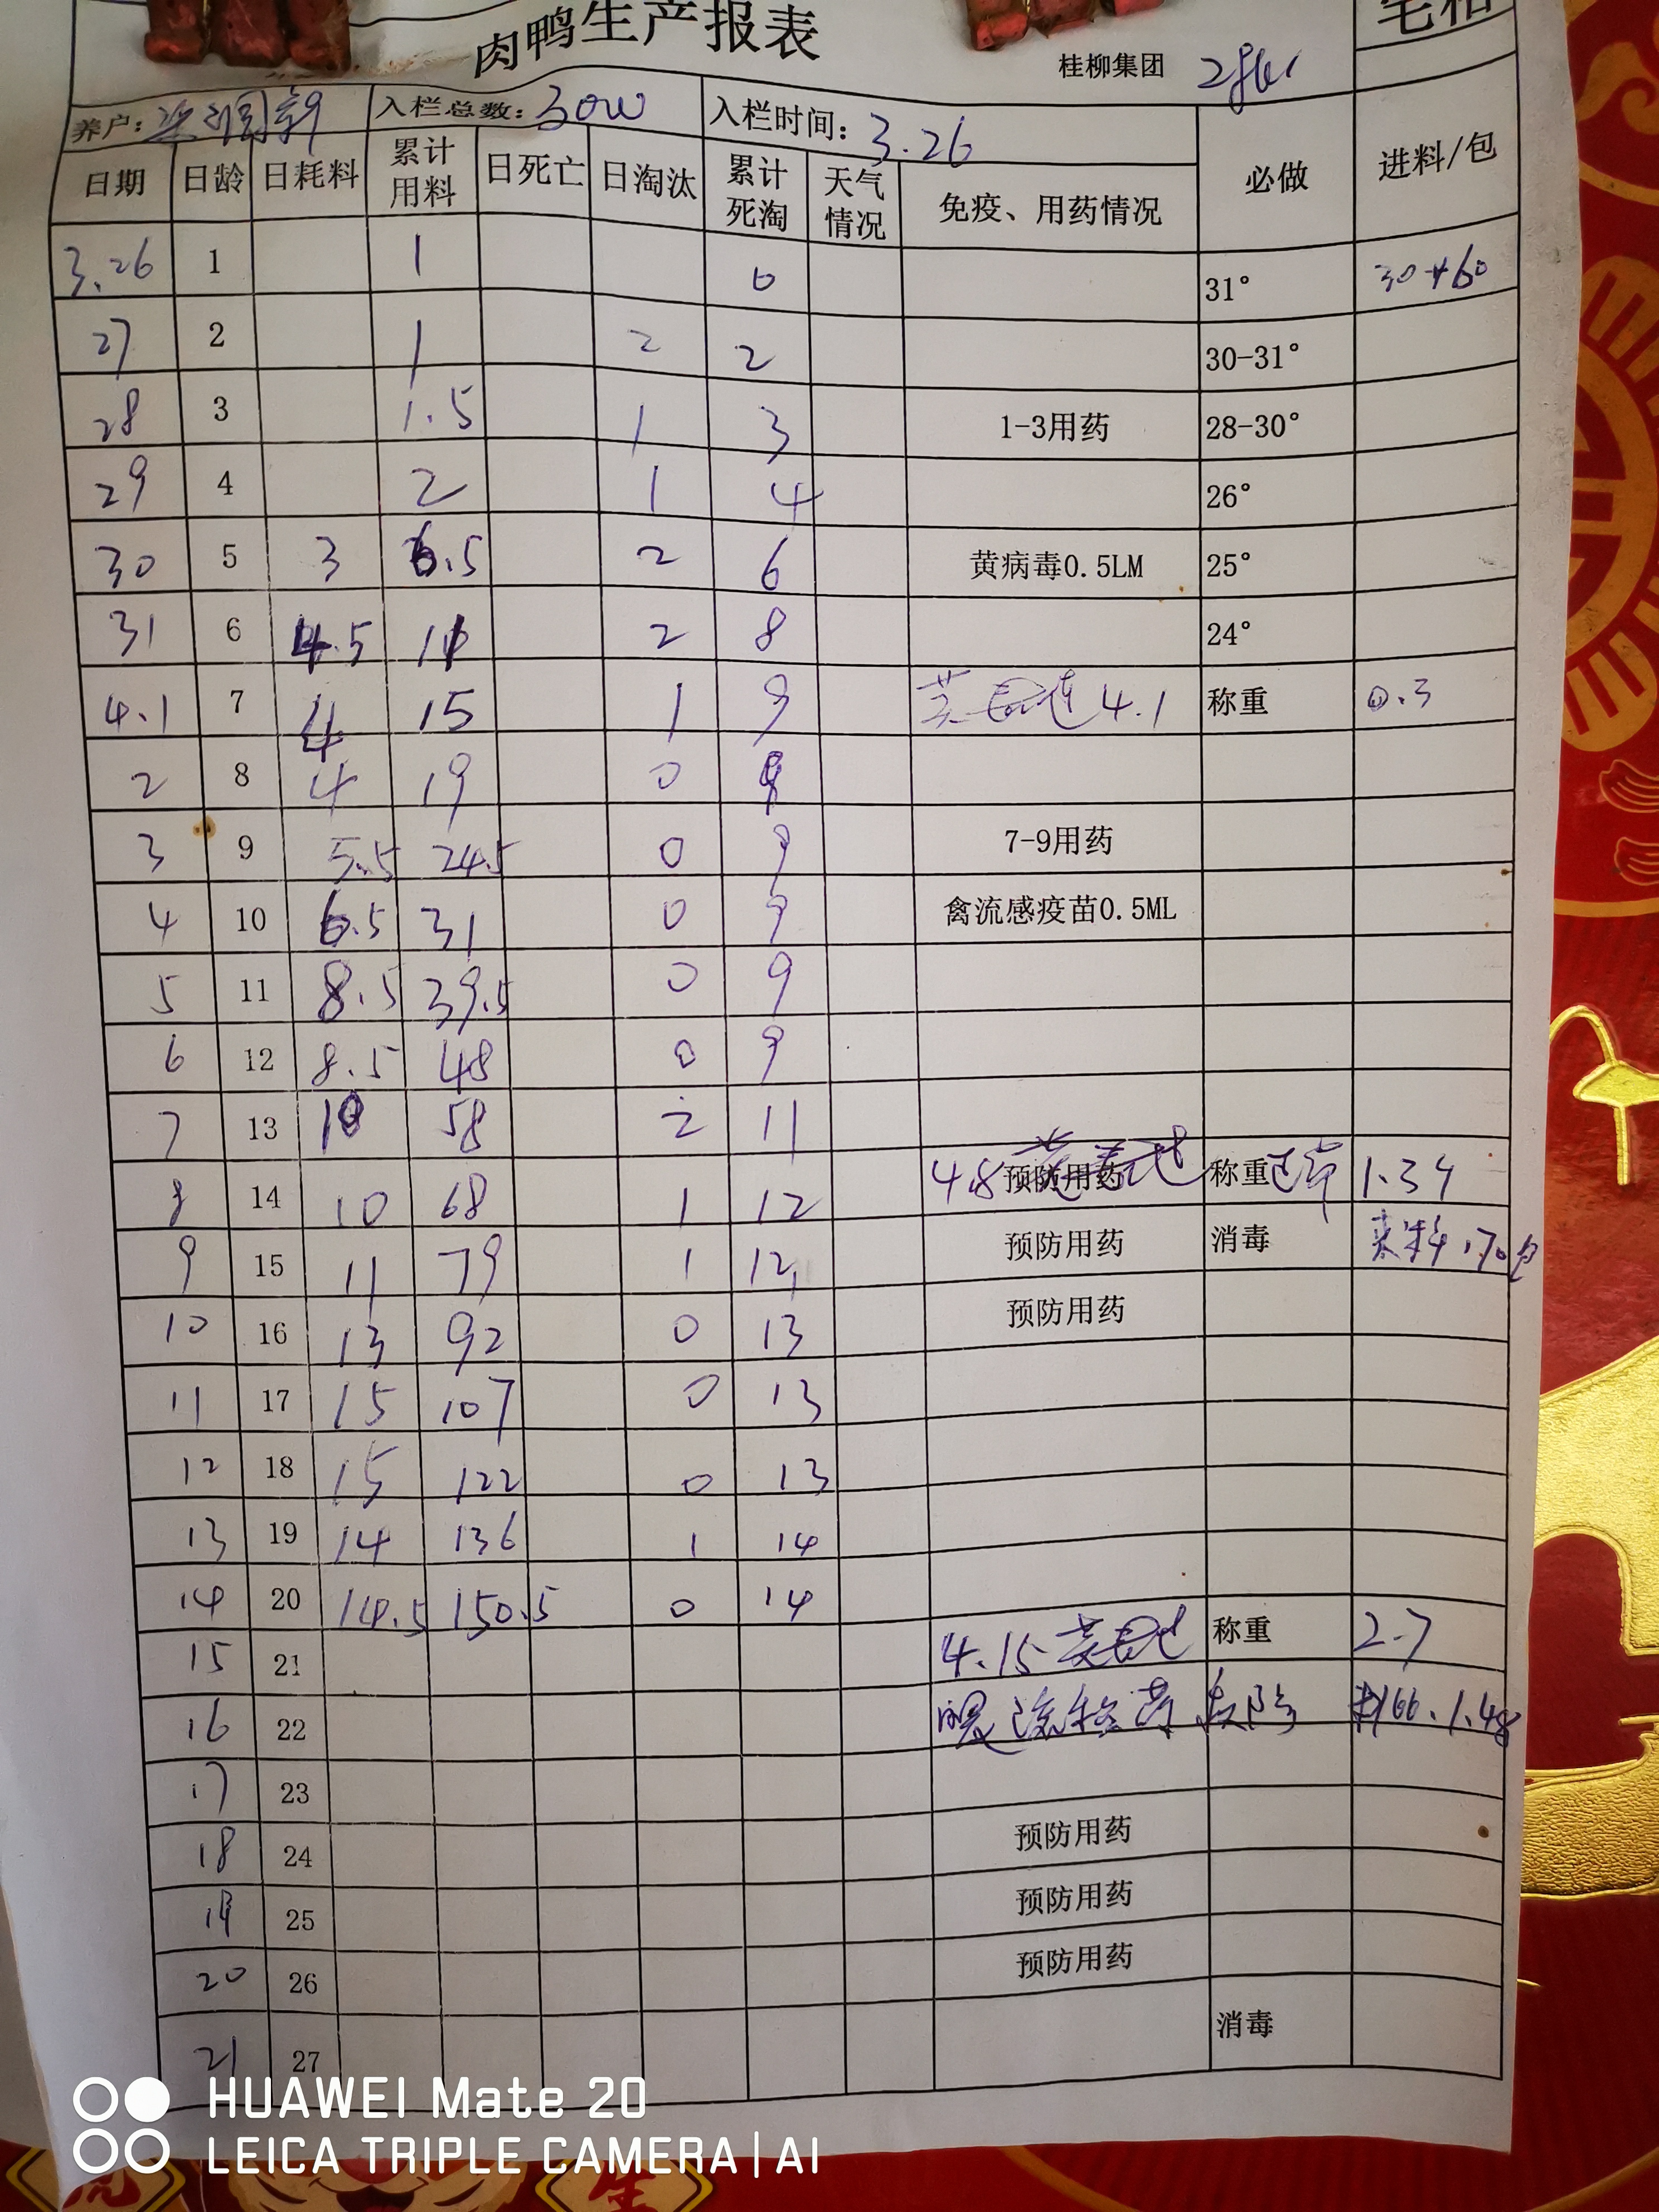 肉鸭生产报表
桂柳集团
养户: 入栏总数: 入栏时间: 3.26
日期 日龄 日耗料 累计用料 日死亡 日淘汰 累计死淘 天气情况 免疫、用药情况 必做 进料/包
3.26 1 1 0 31° 30+60
27 2 1 2 2 30-31°
28 3 1.5 1 3 1-3用药 28-30°
29 4 2 1 4 26°
30 5 3 6.5 2 6 黄病毒0.5LM 25°
31 6 4.5 11 2 8 24°
4.1 7 4 15 1 9 4.1 称重 0.3
2 8 4 19 0 9
3 9 5.5 24.5 0 9 7-9用药
4 10 6.5 31 0 9 禽流感疫苗0.5ML
5 11 8.5 39.5 0 9
6 12 8.5 48 0 9
7 13 10 58 2 11
8 14 10 68 1 12 4.8 预防用药 称重 1.34
9 15 11 79 1 12 预防用药 消毒 来料170包
10 16 13 92 0 13 预防用药
11 17 15 107 0 13
12 18 15 122 0 13
13 19 14 136 1 14
14 20 14.5 150.5 0 14
15 21 4.15 称重 2.7
16 22 1.48
17 23
18 24 预防用药
19 25 预防用药
20 26 预防用药
21 27 消毒
HUAWEI Mate 20
LEICA TRIPLE CAMERA | AI